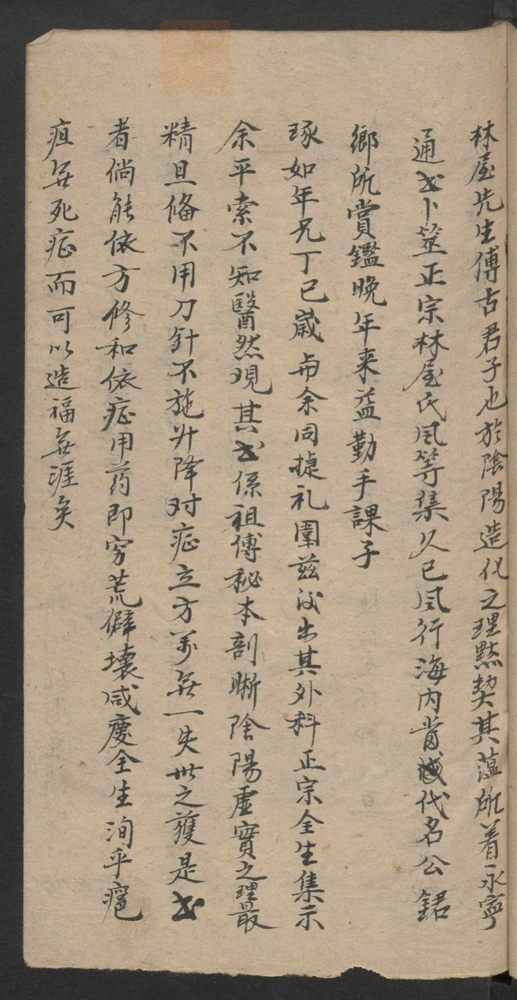 林屋先生傅古君子也於陰陽造化之理黙契其蕴所着永寧
通书卜筮正宗林屋氏风等集久已风行海内當代名公鉅
鄉所賞鑑晚年来益勤手課子
琢如年兄丁巳歲與余同捷礼圍兹以出其外科正宗全生集示
余平素不知醫然观其书係祖傅秘本剖晣陰陽虚實之理最
精且俻不用刀針不施升降对症立方万無一失世之獲是书
者倘能依方修和依症用药即穷荒僻壤咸慶全生洵乎瘡
疽無死症而可以造福無涯矣